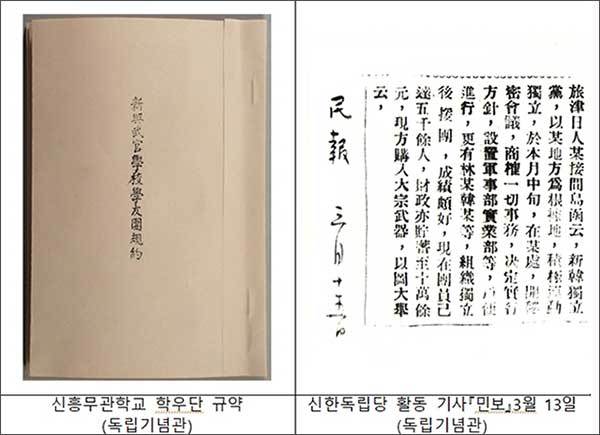 新興武官學校學友團規約
旅津日人某接間島函云，新韓獨立
黨，以某地方爲根據地，積極運動
獨立，於本月中旬，在某處，開秘
密會議，商權一切事務，決定實行
方針，設置軍事部實業部等，卽便
進行，更有林某韓某等，組織獨立
後援團，成績頗好，現在團員已
達五千餘人，財政亦貯蓄至十萬餘
元，現方購入大宗武器，以圖大舉
云，
民報 三月十 日
신흥무관학교 학우단 규약
(독립기념관)
신한독립당 활동 기사『민보』3월 13일
(독립기념관)